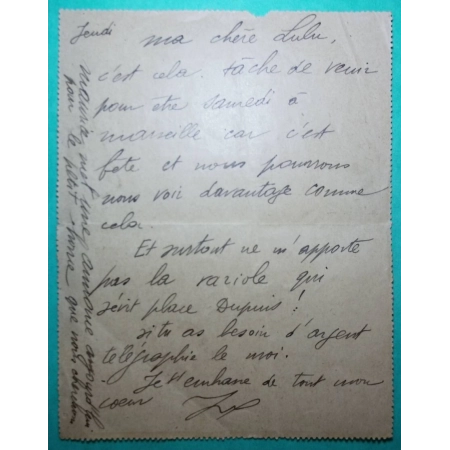 Jeudi
ma chère Lulu,
c'est cela. tâche de venir
pour etre samedi à
marseille car c'est
fete et nous pourrons
nous voir davantage comme
cela.
Et surtout ne m'apporte
pas la variole qui
sévit place Dupuis !
si tu as besoin d'argent
télégraphie le moi.
Je t'embrasse de tout mon
coeur
Maurice met une annonce aujourd'hui
pour le petit que nous cherchons